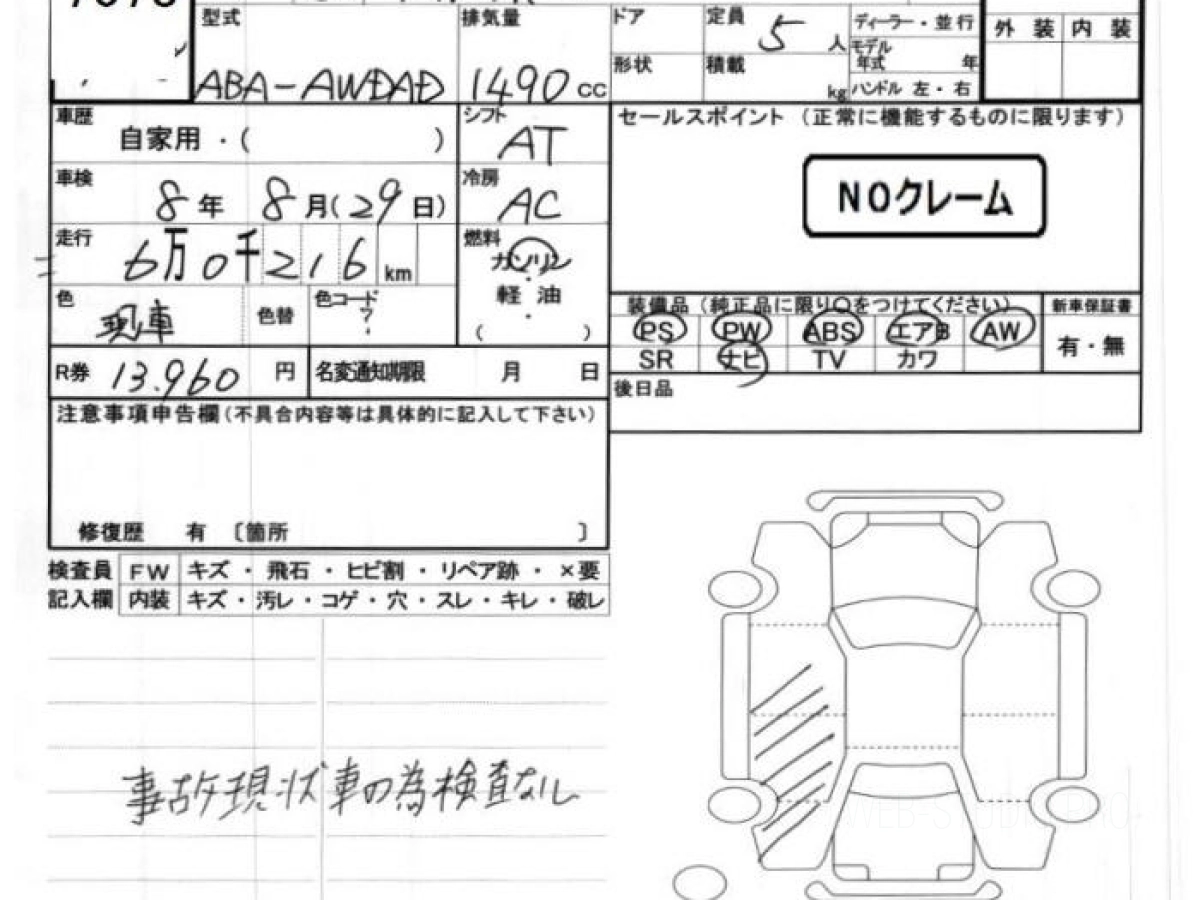 型式 排気量 ドア 定員 5 人 ディーラー・並行 外装 内装
モデル年式 年
ABA-AWDAD 1490 cc 形状 積載 kg ハンドル 左・右
車歴 自家用・( ) シフト AT セールスポイント (正常に機能するものに限ります)
車検 8年 8月(29日) 冷房 AC NOクレーム
走行 6万0千216 km 燃料 ガソリン
軽・油
( )
色 現車 色替 色コード ?
装備品(純正品に限り○をつけてください) 新車保証書
PS PW ABS エアB AW 有・無
SR ナビ TV カワ
R券 13.960 円 名変通知期限 月 日
後日品
注意事項申告欄(不具合内容等は具体的に記入して下さい)
修復歴 有 〔箇所 〕
検査員 FW キズ・飛石・ヒビ割・リペア跡・×要
記入欄 内装 キズ・汚レ・コゲ・穴・スレ・キレ・破レ
事故現状車の為検査なし